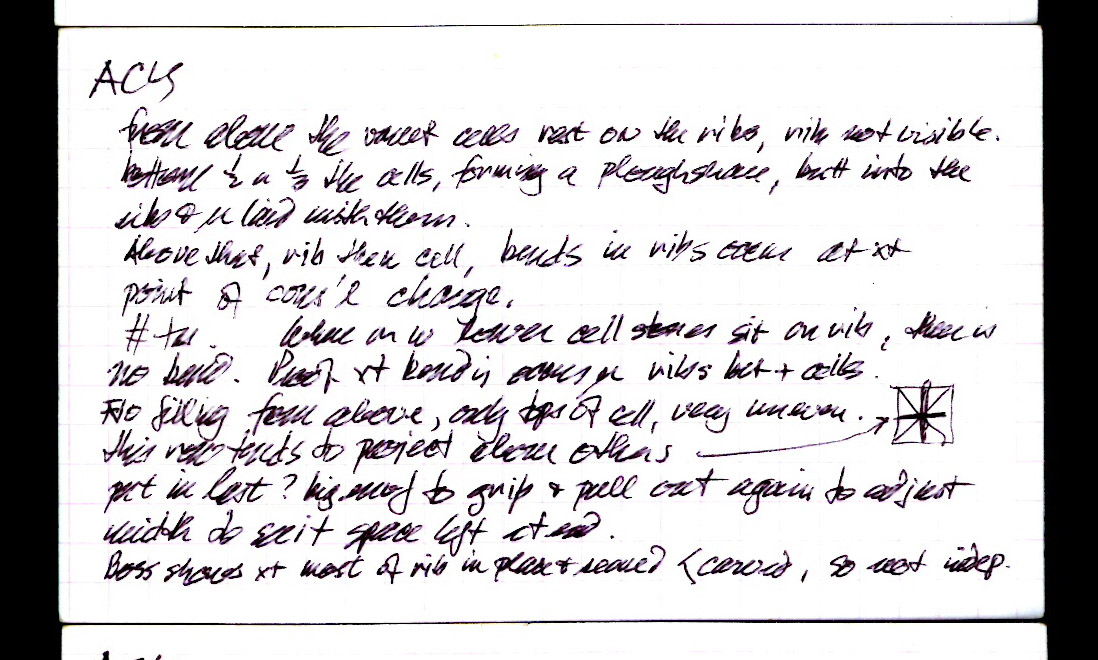 ACH
from above the vault cells rest on the ribs, rib not visible.
bottom ½ or ⅓ the cells, forming a ploughshare, butt into the
ribs & laid with them.
Above that, rib then cell, bends in ribs occur at xt
point of cons'l change.
# ter. When lower cell stones sit on rib, there is
no bend. Proof xt ribs but + cells.
No filling from above, only tops of cell, very uneven.
this row tends to project above others
put in last? big enuf to grip & pull out again to adjust
width to suit space left at end.
Boss shows xt most of rib in place before carved, so not indep.